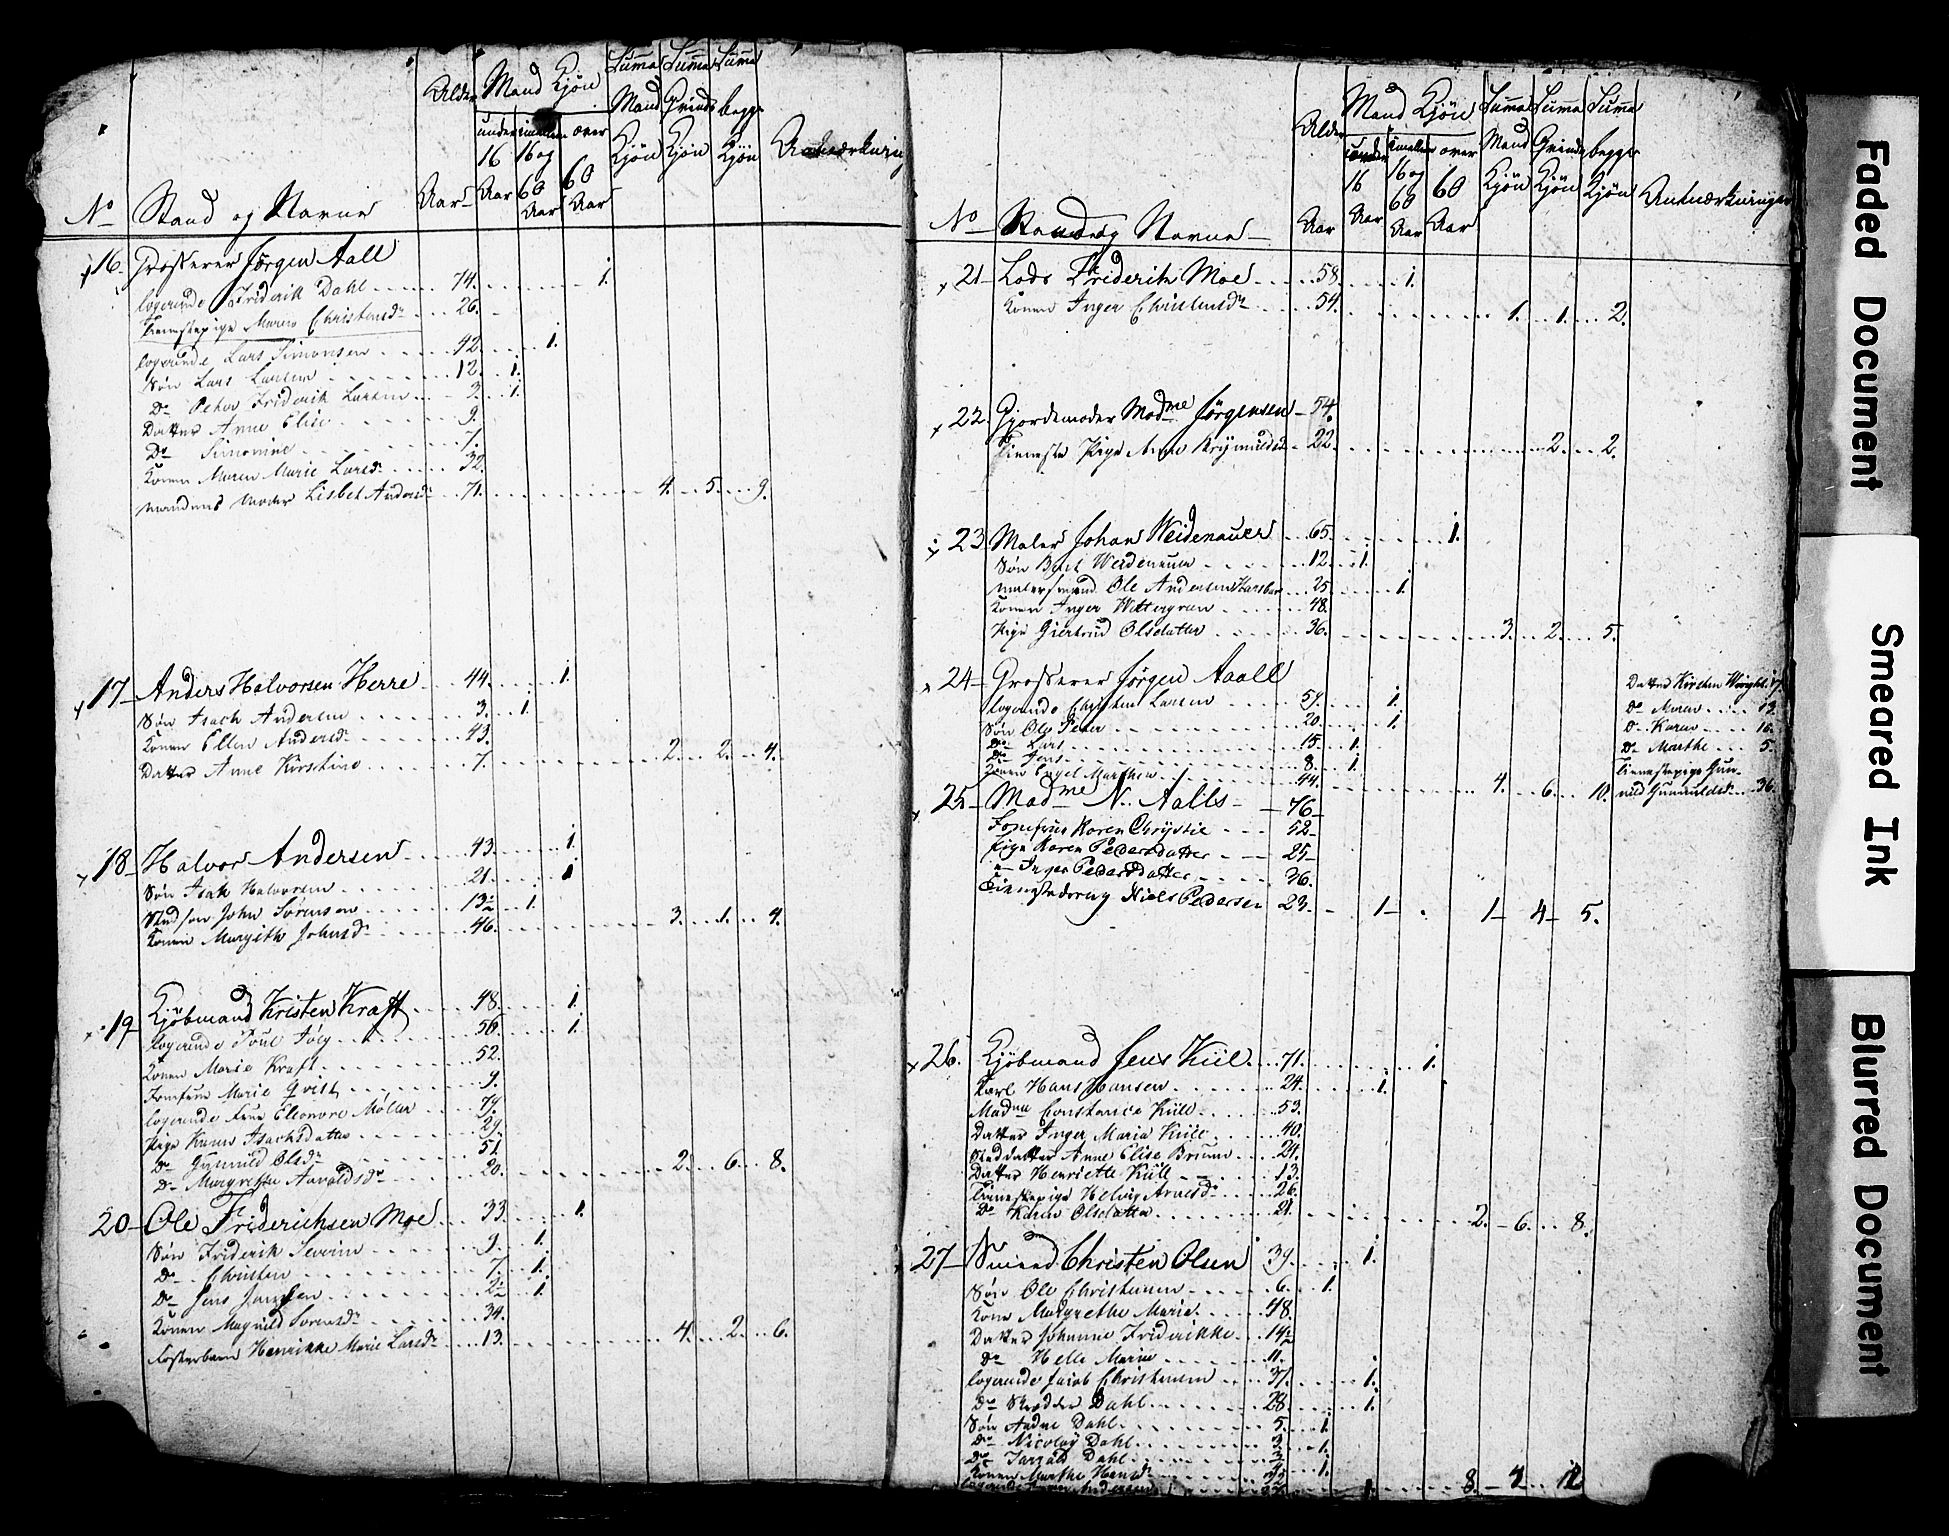 No Stand og Navne Alder Aar Mand Kjön under 16 Aar imellem 16 og 60 Aar over 60 Aar Suma Mand Kjön Suma Qvinde Kjön Suma begge Kjön Anmærkning
16 Grosserer Jörgen Aall
logerende Friderik Dahl 74. 1.
Tienestepige Maren Christensdr 26.
logerende Lars Simonsen 42. 1.
Sön Lars Larsen 12. 1.
Do Peter Friderik Larsen 3. 1.
Datter Anne Elise 9.
Do Simonine 7.
Konen Maren Marie Larsdr 32.
Mandens Moder Lisbet Andersdr 71. 4. 5. 9.
17 Anders Halvorsen Herre 44. 1.
Sön Isach Andersen 3. 1.
Konen Ellen Andersdr 43.
Datter Anne Kirstine 7. 2. 2. 4.
18 Halvor Andersen 43. 1.
Sön Isak Halvorsen 21. 1
Stedsön John Sörensen 13 1.
Konen Margith Johnsdr 46. 3. 1. 4.
19 Kjöbmand Kristen Kraft 48. 1.
logerende Poul Foly 56. 1.
Konen Marie Kraft 52.
Jomfrue Marie Qvist 9.
logerende Frue Eleonore Möller 79.
Pige Karen Isachsdatter 29.
Do Gunnild Olsdr 51.
Do Margrethe Aavoldsdr 20. 2. 6. 8.
20 Ole Friderichsen Moe 33. 1.
Sön Friderik Severin 9. 1.
Do Christen 7. 1.
Do Jens 2 1.
Konen Magnild Sorensdr 34.
Fosterbarn Henrikke Marie Larsdr 13. 4. 2. 6.
No Stand og Navne Alder Aar Mand Kjön under 16 Aar imellem 16 og 60 Aar over 60 Aar Suma Mand Kjön Suma Qvinde Kjön Suma begge Kjön Anmærkninger
21 Lods Friderik Moe 58. 1.
Konen Inger Christensdr 54. 1. 1. 2.
22 Gjordemoder Madme Jörgensen 54.
Tieneste Pige Anne 22. 2. 2.
23 Maler Johan Weidenauer 65. 1.
Sön Bent Weidenauer 12. 1.
Malersvend Ole Andersen 25. 1.
Konen Inger Wettergren 48.
Pige Giertrud Olsdatter 36. 3. 2. 5.
24 Grosserer Jörgen Aaall
logerende Christen Larsen 59. 1.
Sön Ole Peter 20. 1.
Do Lars 15. 1.
Do Jens 8. 1.
Konen Engel Marthea 44. 4. 6. 10.
Datter Kirsten 17.
Do Maren
Do Karen
Do Marthe 5.
Tienestepige Gunnild Gunnuldsdr 36
25 Madme N. Aalls 76
Jomfrue Karen Chrystie 52
Pige Karen Pedersdatter 25
Inger Pedersdatter 36.
Tienestedreng Niels Pedersen 23. 1 1 4 5.
26. Kjöbmand Jens Kiil 71. 1.
Karl Hans Hansen 24. 1.
Madme Constance Kiill 53.
Datter Inger Maria Kiill 40.
Steddatter Anne Elise Bruun 24.
Datter Henriette Kiill 13.
Tienestepige Helvig Arnesdr 26.
Do Karen Olsdatter 21. 2. 6. 8.
27 Smed Christen Olsen 39. 1.
Sön Ole Christensen 6. 1.
Kone Margrethe Marie 48.
Datter Johanne Friderikke 14
Do Helle Marie 11.
logerende Jacob Christensen 37. 1.
Do Skrædder Dahl 28. 1.
Sön Andre Dahl 5. 1.
Do Nicolay Dahl 3. 1.
Do Dahl 1.
Konen Marthe Hansdr 32
logerende Andersen 1. 8. 12
Faded Document
Smeared Ink
Blurred Document